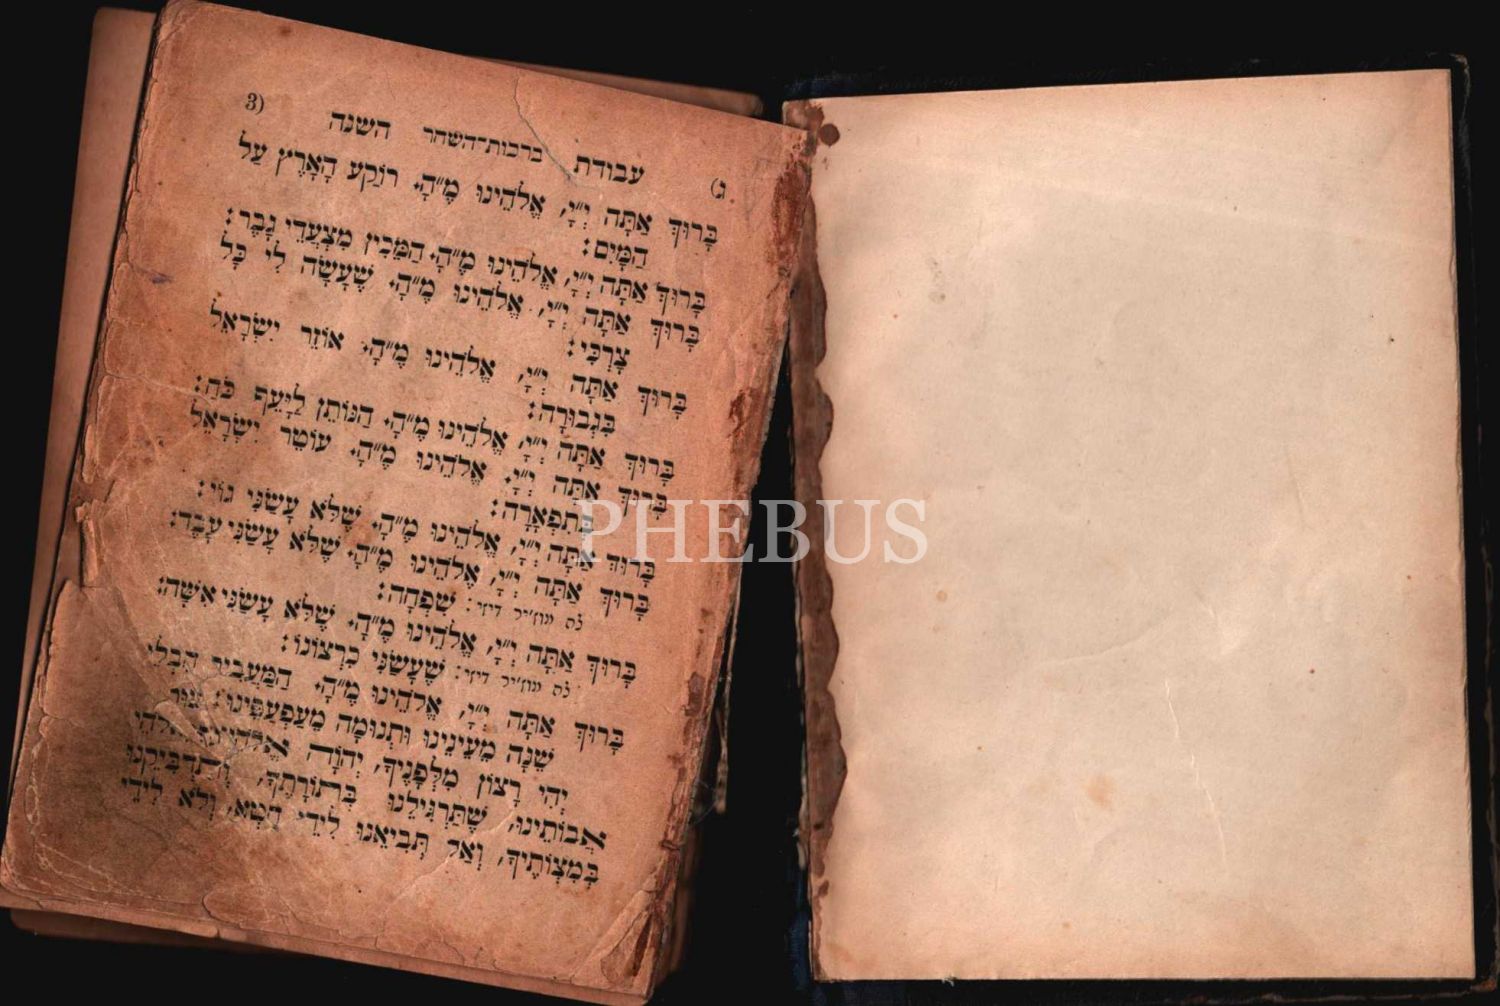 ג)
עבודת ברכות־השחר השנה
3)
בָּרוּךְ אַתָּה יְ״יָ, אֱלֹהֵינוּ מֶ״הָ, רוֹקַע הָאָרֶץ עַל
הַמָּיִם:
בָּרוּךְ אַתָּה יְ״יָ, אֱלֹהֵינוּ מֶ״הָ, הַמֵּכִין מִצְעֲדֵי גָבֶר:
בָּרוּךְ אַתָּה יְ״יָ, אֱלֹהֵינוּ מֶ״הָ, שֶׁעָשָׂה לִי כָּל
צָרְכִּי:
בָּרוּךְ אַתָּה יְ״יָ, אֱלֹהֵינוּ מֶ״הָ, אוֹזֵר יִשְׂרָאֵל
בִּגְבוּרָה:
בָּרוּךְ אַתָּה יְ״יָ, אֱלֹהֵינוּ מֶ״הָ, הַנּוֹתֵן לַיָּעֵף כֹּחַ:
בָּרוּךְ אַתָּה יְ״יָ, אֱלֹהֵינוּ מֶ״הָ, עוֹטֵר יִשְׂרָאֵל
בְּתִפְאָרָה:
בָּרוּךְ אַתָּה יְ״יָ, אֱלֹהֵינוּ מֶ״הָ, שֶׁלֹּא עָשַׂנִי גוֹי:
בָּרוּךְ אַתָּה יְ״יָ, אֱלֹהֵינוּ מֶ״הָ, שֶׁלֹּא עָשַׂנִי עָבֶד:
שִׁפְחָה:
בָּרוּךְ אַתָּה יְ״יָ, אֱלֹהֵינוּ מֶ״הָ, שֶׁלֹּא עָשַׂנִי אִשָּׁה:
שֶׁעָשַׂנִי כִּרְצוֹנוֹ:
בָּרוּךְ אַתָּה יְ״יָ, אֱלֹהֵינוּ מֶ״הָ, הַמַּעֲבִיר חֶבְלֵי
שֵׁנָה מֵעֵינֵינוּ וּתְנוּמָה מֵעַפְעַפֵּינוּ:
יְהִי רָצוֹן מִלְּפָנֶיךָ, יְהוָֹה אֱלֹהֵינוּ וֵאלֹהֵי
אֲבוֹתֵינוּ, שֶׁתַּרְגִּילֵנוּ בְּתוֹרָתֶךָ, וְתַדְבִּיקֵנוּ
בְּמִצְוֹתֶיךָ, וְאַל תְּבִיאֵנוּ לִידֵי חֵטְא, וְלֹא לִידֵי
PHEBUS